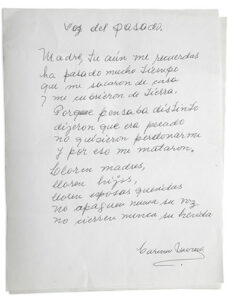 Voz del pasado.
Madre, tu aún me recuerdas
ha pasado mucho tiempo
que me sacaron de casa
y me cubrieron de tierra.
Porque pensaba distinto
dijeron que era pecado
no quisieron perdonarme
y por eso me mataron.
Lloren madres,
lloren hijos,
lloren esposas queridas
no apaguen nunca su voz
no cierren nunca su herida
Carmen